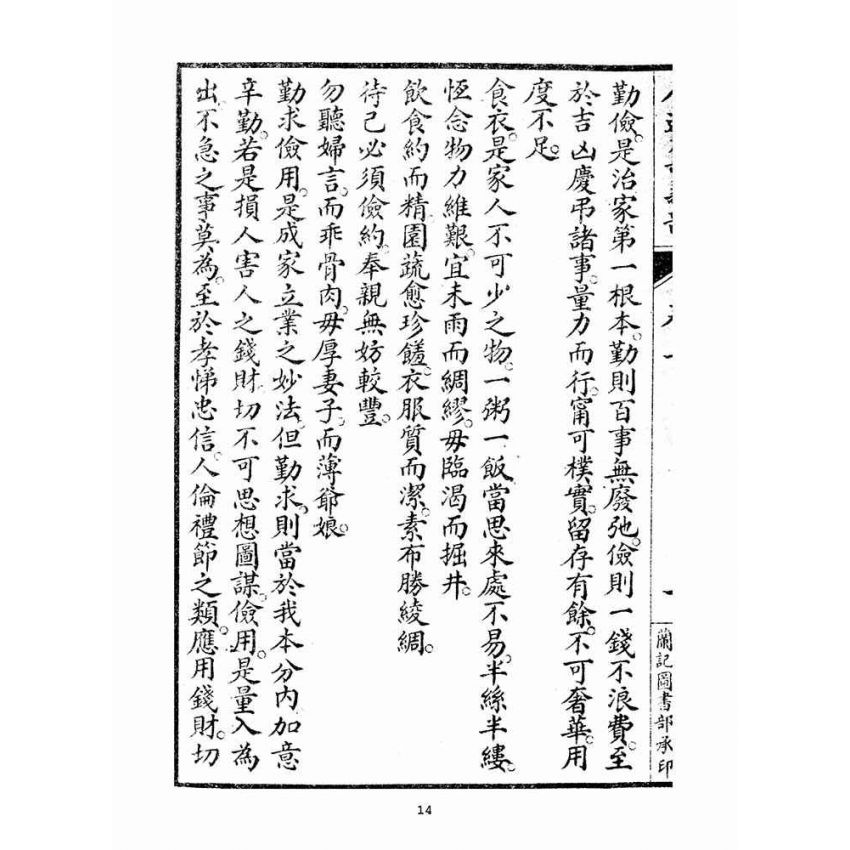 勤儉。是治家第一根本。勤則百事無廢弛。儉則一錢不浪費。至
於吉凶慶弔諸事。量力而行。甯可樸實。留存有餘。不可奢華。用
度不足。
食衣。是家人不可少之物。一粥一飯當思來處不易。半絲半縷。
恆念物力維艱。宜未雨而綢繆。毋臨渴而掘井。
飲食約而精。園蔬愈珍饈。衣服質而潔。素布勝綾綢。
待己必須儉約。奉親無妨較豐。
勿聽婦言。而乖骨肉。毋厚妻子。而薄爺娘。
勤求儉用。是成家立業之妙法。但勤求。則當於我本分內加意
辛勤。若是損人害人之錢財。切不可思想圖謀。儉用。是量入為
出。不急之事莫為。至於孝悌忠信。人倫禮節之類。應用錢財。切
蘭記圖書部承印
14